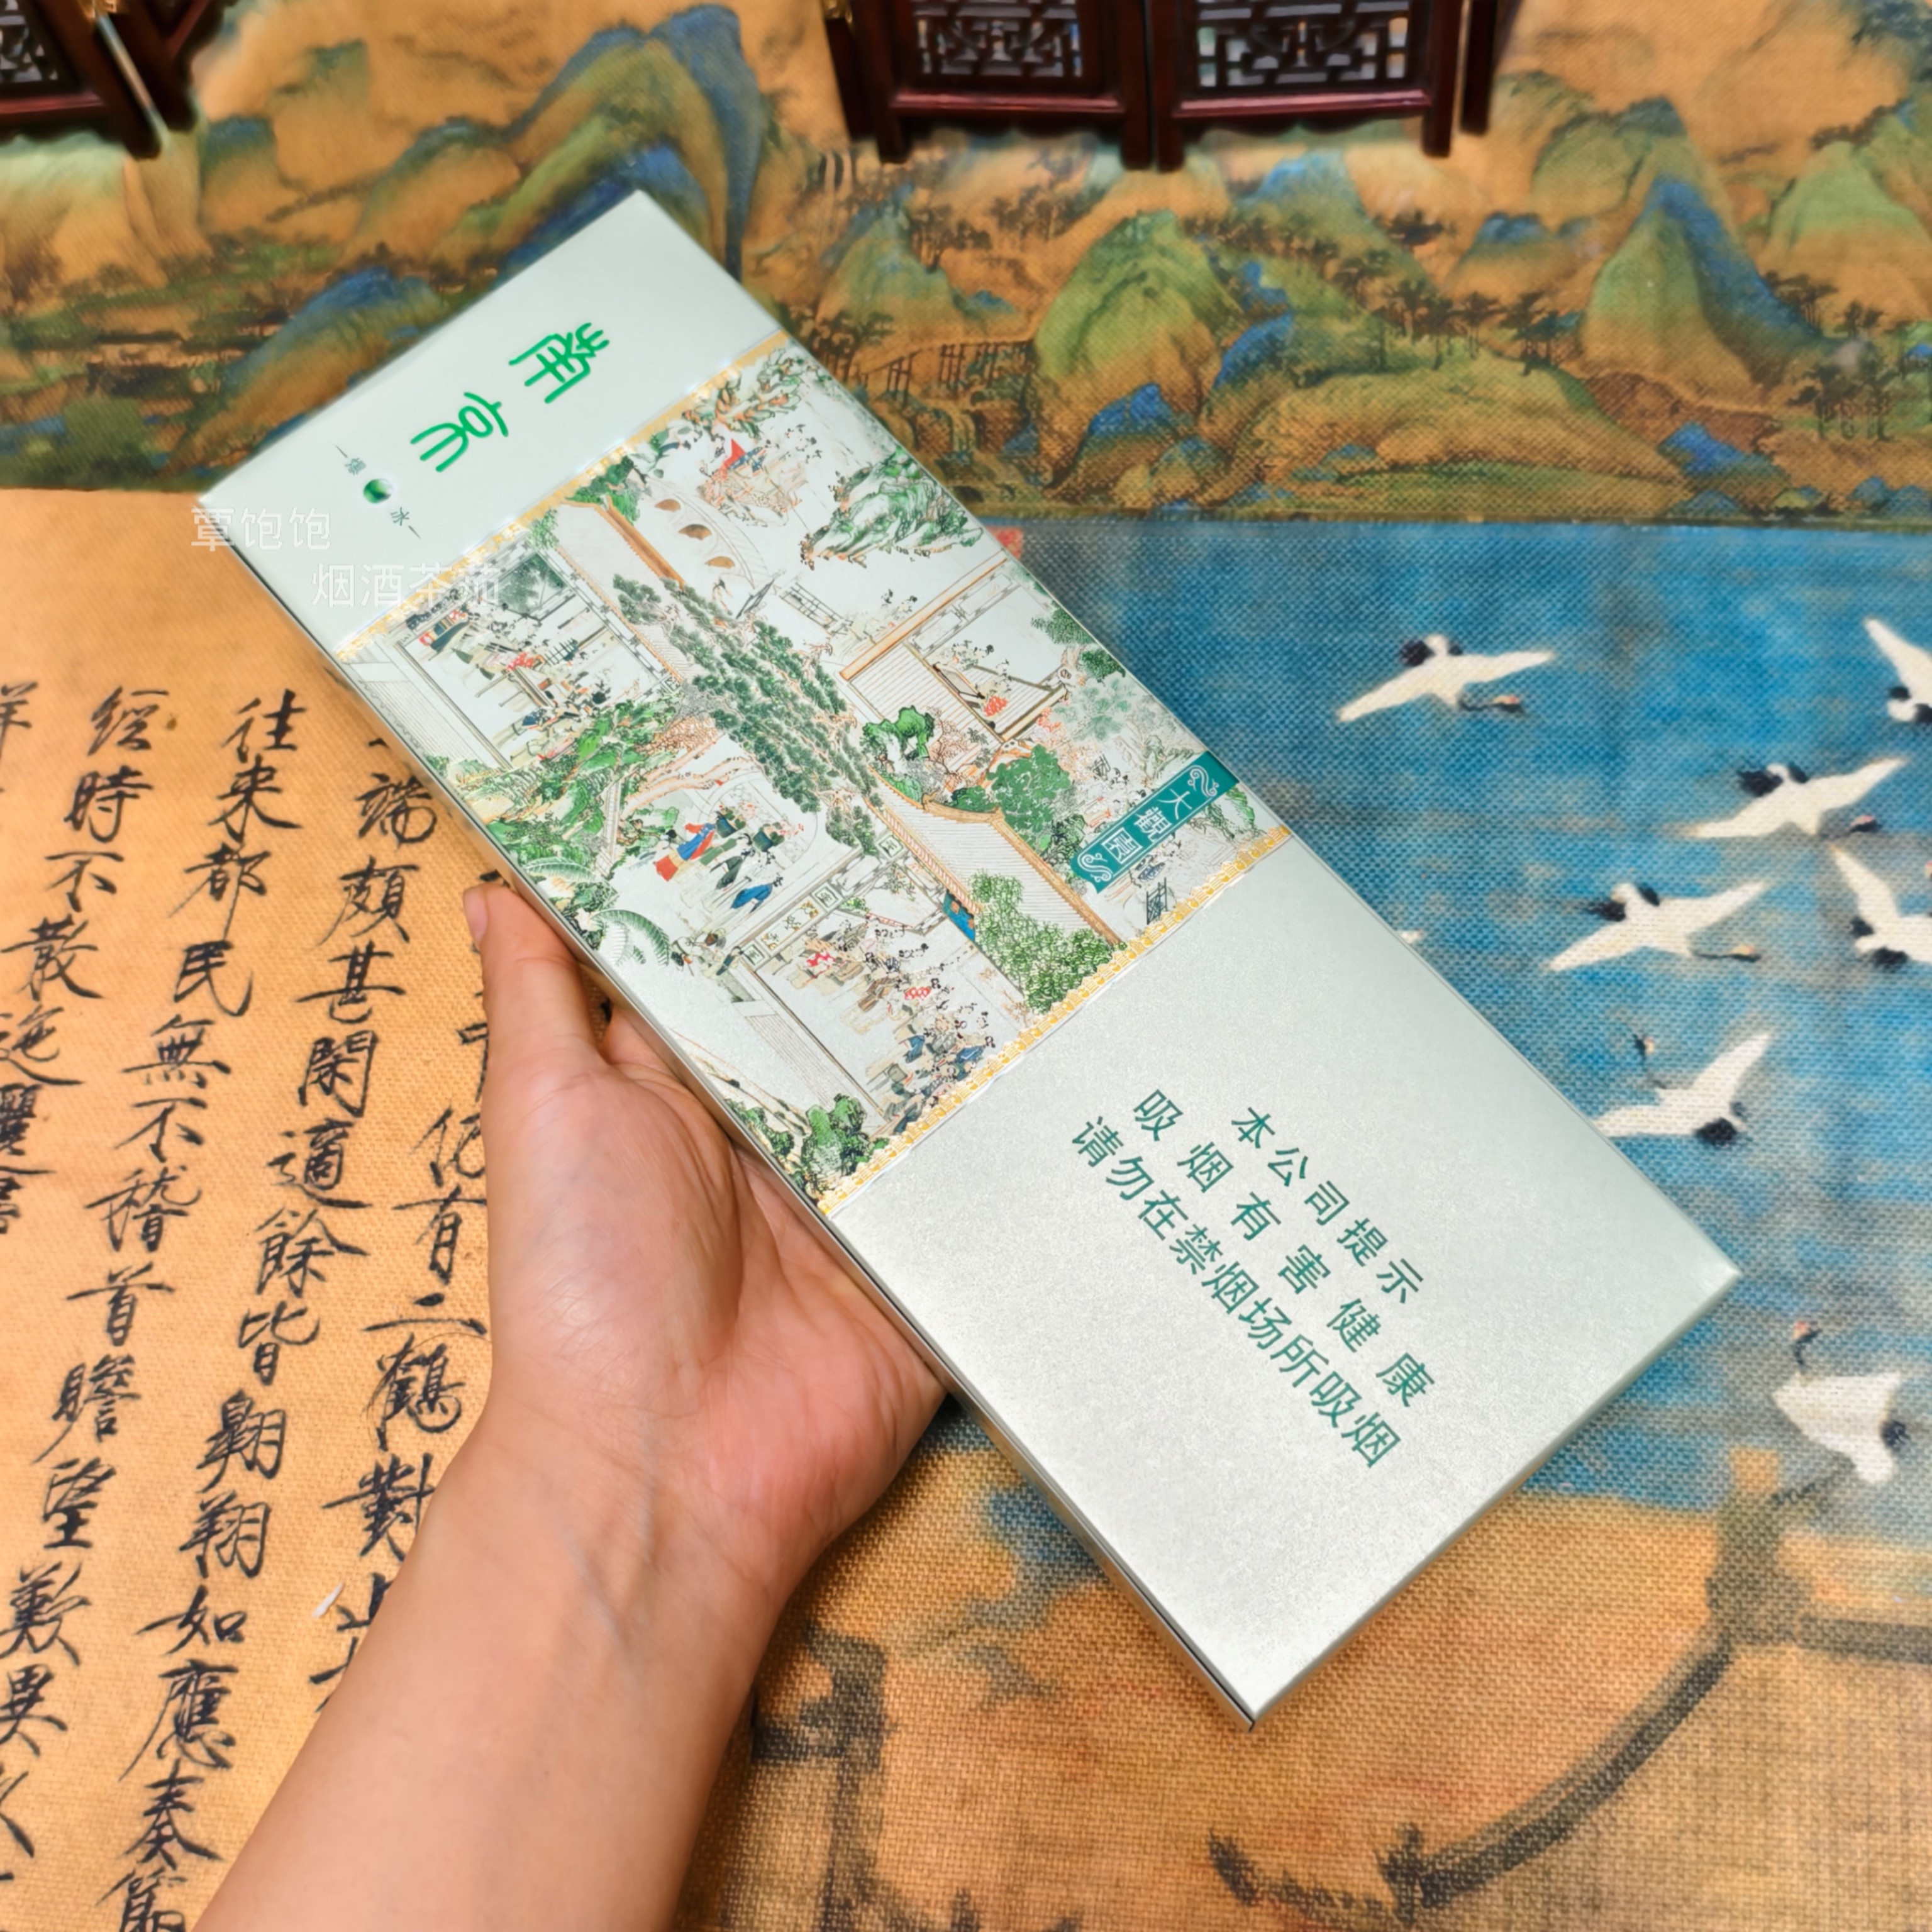 南京
爆 冰
大觀園
本公司提示
吸烟有害健康
请勿在禁烟场所吸烟
覃饱饱
烟酒茶茄
有二鶴對止
端頗甚閑適餘皆翱翔如應奏節
往来都民無不稽首瞻望歎異
经時不散迤邐